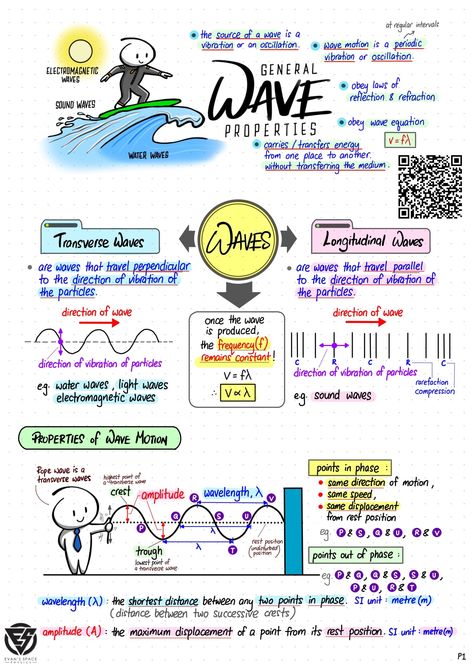 at regular intervals
the source of a wave is a
vibration or an oscillation.
wave motion is a periodic
vibration or oscillation.
ELECTROMAGNETIC
WAVES
SOUND WAVES
WATER WAVES
GENERAL
WAVE
PROPERTIES
obey laws of
reflection & refraction
obey wave equation
v = fλ
carries / transfers energy
from one place to another.
without transferring the medium.
Transverse Waves
WAVES
Longitudinal Waves
are waves that travel perpendicular
to the direction of vibration of
the particles.
direction of wave
direction of vibration of particles
eg. water waves, light waves
electromagnetic waves
once the wave
is produced,
the frequency(f)
remains constant!
v = fλ
∴ v ∝ λ
are waves that travel parallel
to the direction of vibration of
the particles.
direction of wave
C R C R C
direction of vibration of particles
rarefaction
compression
eg. sound waves
PROPERTIES of WAVE MOTION
Rope wave is a
transverse waves
highest point of
a transverse wave
crest
amplitude
wavelength, λ
P Q R S T U V
λ
λ
trough
lowest point of
a transverse wave
rest position
(undisturbed)
position
points in phase :
same direction of motion,
same speed,
same displacement
from rest position
eg. P & S, Q & U, R & V
points out of phase :
eg. P & Q, Q & S, S & U,
P & U, R & T
wavelength (λ) : the shortest distance between any two points in phase. SI unit : metre(m)
(distance between two successive crests)
amplitude (A) : the maximum displacement of a point from its rest position. SI unit : metre (m)
EVAN'S SPACE
P1